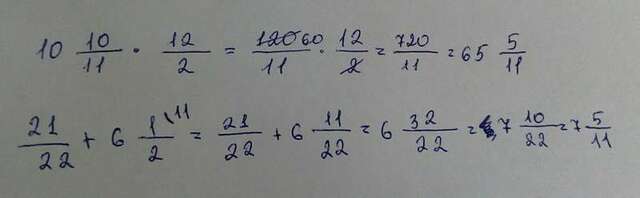 10 10/11 · 12/2 = 120 60/11 · 12/2 = 720/11 = 65 5/11
21/22 + 6 1\11/2 = 21/22 + 6 11/22 = 6 32/22 = 7 10/22 = 7 5/11